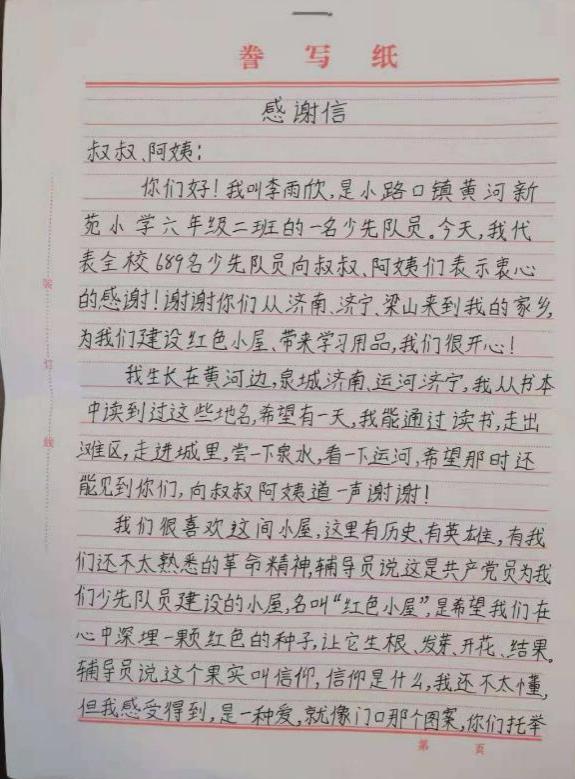 誊写纸
感谢信
叔叔、阿姨：
你们好！我叫李雨欣，是小路口镇黄河新
苑小学六年级二班的一名少先队员。今天，我代
表全校689名少先队员向叔叔、阿姨们表示衷心
的感谢！谢谢你们从济南、济宁、梁山来到我的家乡，
为我们建设红色小屋、带来学习用品，我们很开心！
我生长在黄河边，泉城济南、运河济宁，我从书本
中读到过这些地名，希望有一天，我能通过读书，走出
滩区，走进城里，尝一下泉水，看一下运河，希望那时还
能见到你们，向叔叔阿姨道一声谢谢！
我们很喜欢这间小屋，这里有历史、有英雄，有我
们还不太熟悉的革命精神，辅导员说这是共产党员为我
们少先队员建设的小屋，名叫“红色小屋”，是希望我们在
心中深埋一颗红色的种子，让它生根、发芽、开花、结果。
辅导员说这个果实叫信仰，信仰是什么，我还不太懂，
但我感受得到，是一种爱，就像门口那个图案，你们托举
第 页
装
订
线